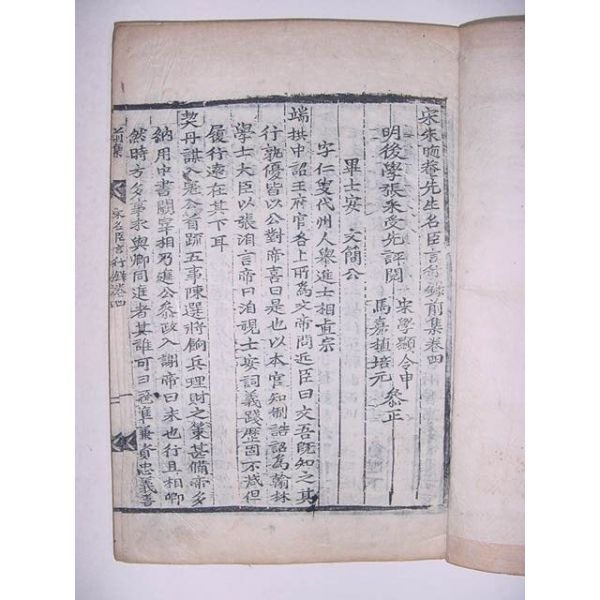 宋朱晦菴先生名臣言行錄前集卷四
明後學張采受先評閱
宋學顯令申
馬嘉植培元
叅正
畢士安 文簡公
字仁叟代州人舉進士相真宗
端拱中詔王府官各上所為文帝問近臣曰文吾旣知之其
行孰優皆以公對帝喜曰是也以本官知制誥詔為翰林
學士大臣以張洎言帝曰洎視士安詞義踐歷固不减但
履行遠在其下耳
契丹謀入寇公首疏五事陳選將餉兵理財之策甚備帝多
納用中書闕宰相乃進公叅政入謝帝曰未也行且相卿
然時方多事求與卿同進者其誰可曰冦準兼資忠義善
前集
宋名臣言行錄卷四
一